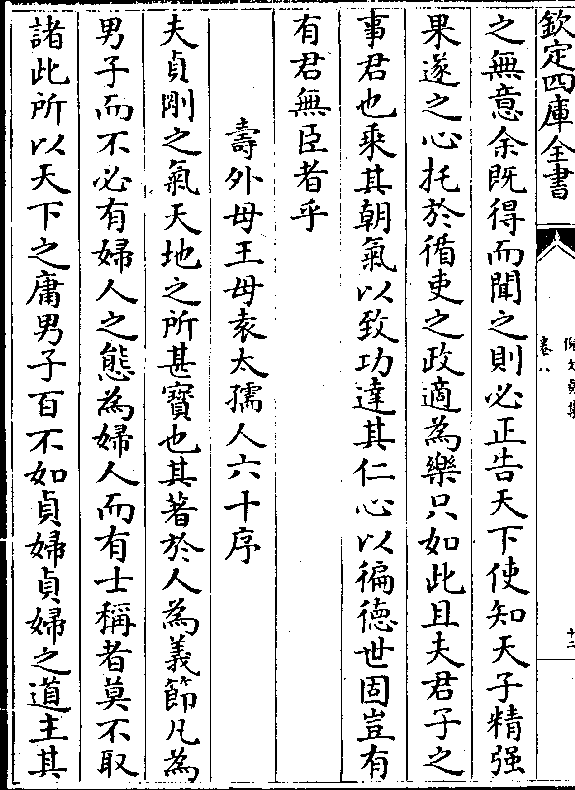 欽定四庫全書
卷八
十二
之無意余既得而聞之則必正告天下使知天子精强
果遂之心托於循吏之政適為樂只如此且夫君子之
事君也乘其朝氣以致功達其仁心以徧德世固豈有
有君無臣者乎
壽外母王母袁太孺人六十序
夫貞剛之氣天地之所甚寳也其著於人為義節凡為
男子而不必有婦人之態為婦人而有士稱者莫不取
諸此所以天下之庸男子百不如貞婦貞婦之道主其